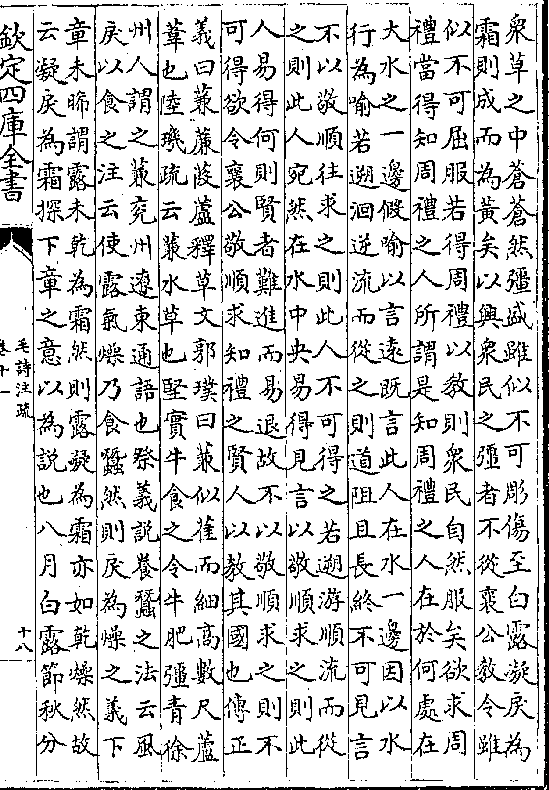 衆草之中蒼蒼然彊盛雖似不可彫傷至白露凝戾為
霜則成而為黃矣以興衆民之彊者不從襄公教令雖
似不可屈服若得周禮以教則衆民自然服矣欲求周
禮當得知周禮之人所謂是知周禮之人在於何處在
大水之一邊假喻以言遠既言此人在水一邊因以水
行為喻若遡洄逆流而從之則道阻且長終不可見言
不以敬順往求之則此人不可得之若遡游順流而從
之則此人宛然在水中央易得見言以敬順求之則此
人易得何則賢者難進而易退故不以敬順求之則不
可得欲令襄公敬順求知禮之賢人以教其國也傳正
義曰蒹薕葭蘆釋草文郭璞曰蒹似萑而細高數尺蘆
葦也陸璣疏云蒹水草也堅實牛食之令牛肥彊青徐
州人謂之蒹兖州遼東通語也祭義說養蠶之法云風
戾以食之注云使露氣燥乃食蠶然則戾為燥之義下
章未晞謂露未乾為霜然則露凝為霜亦如乾燥然故
云凝戾為霜探下章之意以為說也八月白露節秋分
欽定四庫全書
毛詩注疏
卷十一
十八